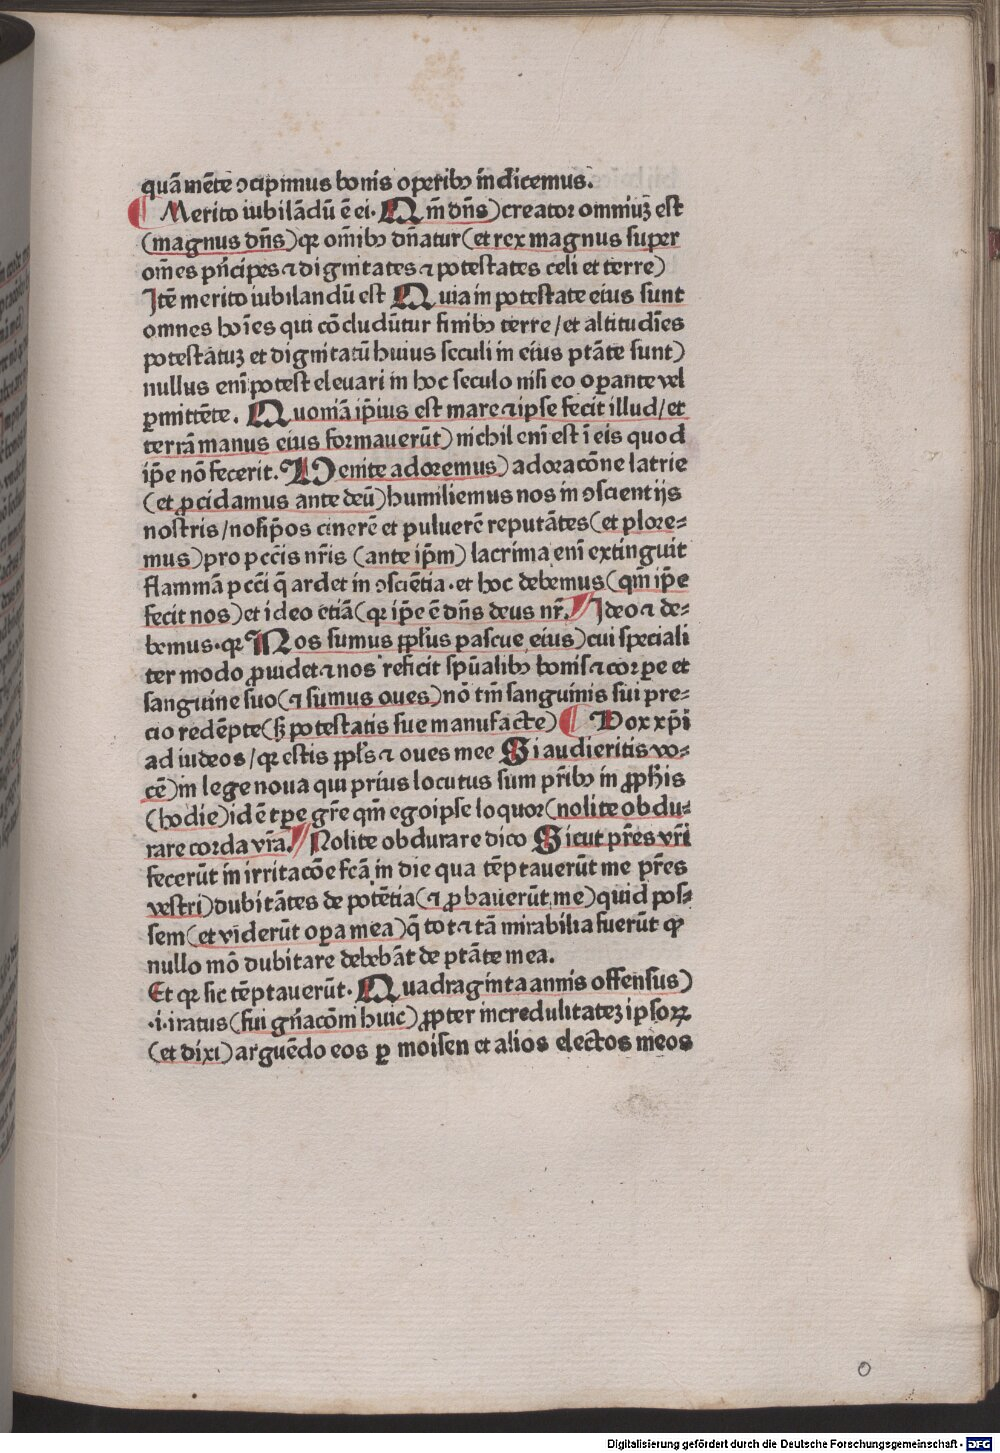 quā mēte ↄcipimus bonis operibꝫ īndicemus.
¶ Merito iubilādū ē ei. Qm̄ dn̄s) creator omniuꝫ est
(magnus dn̄s) qꝛ om̄ibꝫ dn̄atur (et rex magnus super
om̄es pn̄cipes ⁊ dignitates ⁊ potestates celi et terre)
Itē merito iubilandū est Quia in potestate eius sunt
omnes hoīes qui cōcludūtur finibꝫ terre / et altitudīes
potestātuꝫ et dignitatū huius seculi in eius ptāte sunt)
nullus enī potest eleuari in hoc seculo nisi eo oꝑante vel
ꝑmittēte. Quoniā ip̄ius est mare ⁊ ipse fecit illud / et
terrā manus eius formauerūt) nichil enī est ī eis quod
ip̄e nō fecerit. Uenite adoremus) adoracōne latrie
(et ꝓcidamus ante deū) humiliemus nos in ↄscientijs
nostris / nosip̄os cinerē et puluerē reputātes (et plore-
mus) pro pccīs nr̄is (ante ip̄m) lacrima enī extinguit
flammā pccī q̄ ardet in ↄsciētia. et hoc debemus (qm̄ ip̄e
fecit nos) et ideo etiā (qꝛ ip̄e ē dn̄s deus nr̄. Ideo ⁊ de-
bemus. qꝛ Nos sumus ppl̄us pascue eius) cui speciali
ter modo ꝓuidet. ⁊ nos reficit spūalibꝫ bonis ⁊ corꝑe et
sanguine suo (⁊ sumus oues) nō tm̄ sanguinis sui pre-
cio redēpte (sꝫ potestatis sue manufacte) ¶ Vox xp̄i
ad iudeos / qꝛ estis ppl̄s ⁊ oues mee Si audieritis vo-
cē) in lege noua qui prius locutus sum pr̄ibꝫ in ꝓph̄is
(hodie) id ē tꝑe gr̄e qm̄ ego ipse loquor (nolite obdu-
rare corda vr̄a. Nolite obdurare dico Sicut pr̄es vr̄i
fecerūt in irritacōe fcā in die qua tēptauerūt me pr̄es
vestri) dubitātes de potētia (⁊ ꝓbauerūt me) quid pos-
sem (et viderūt oꝑa mea) q̄ tot ⁊ tā mirabilia fuerūt ꝙ
nullo mō dubitare debebāt de ptāte mea.
Et qꝛ sic tēptauerūt. Quadraginta annis offensus)
.i. iratus (fui gn̄acōm huic) ꝓpter incredulitateꝫ ipsoꝝ
(et dixi) arguēdo eos ꝑ moisen et alios electos meos
o
Digitalisierung gefördert durch die Deutsche Forschungsgemeinschaft - DFG